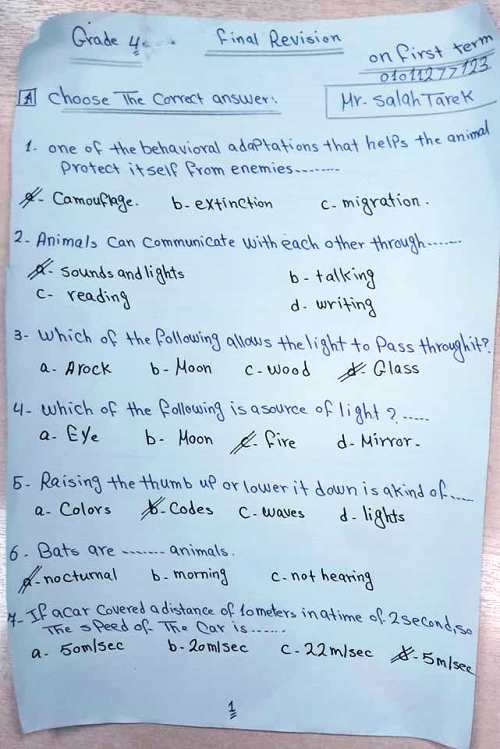 Grade 4 Final Revision
on first term
01011277123
A Choose The Correct answer: Mr. Salah Tarek
1- one of the behavioral adaptations that helps the animal
Protect itself from enemies........
a- Camouflage. b- extinction c- migration.
2- Animals Can Communicate with each other through.......
a- sounds and lights b- talking
c- reading d- writing
3- Which of the following allows the light to Pass through it?
a- A rock b- Moon c- wood d- Glass
4- which of the following is a source of light ? .....
a- Eye b- Moon c- fire d- Mirror-
5- Raising the thumb up or lower it down is a kind of.....
a- Colors b- Codes c- waves d- lights
6- Bats are ........ animals.
a- nocturnal b- morning c- not hearing
7- If a car covered a distance of 10 meters in a time of 2 second, so
The speed of The Car is ......
a- 50m/sec b- 20m/sec c- 22m/sec d- 5m/sec
1